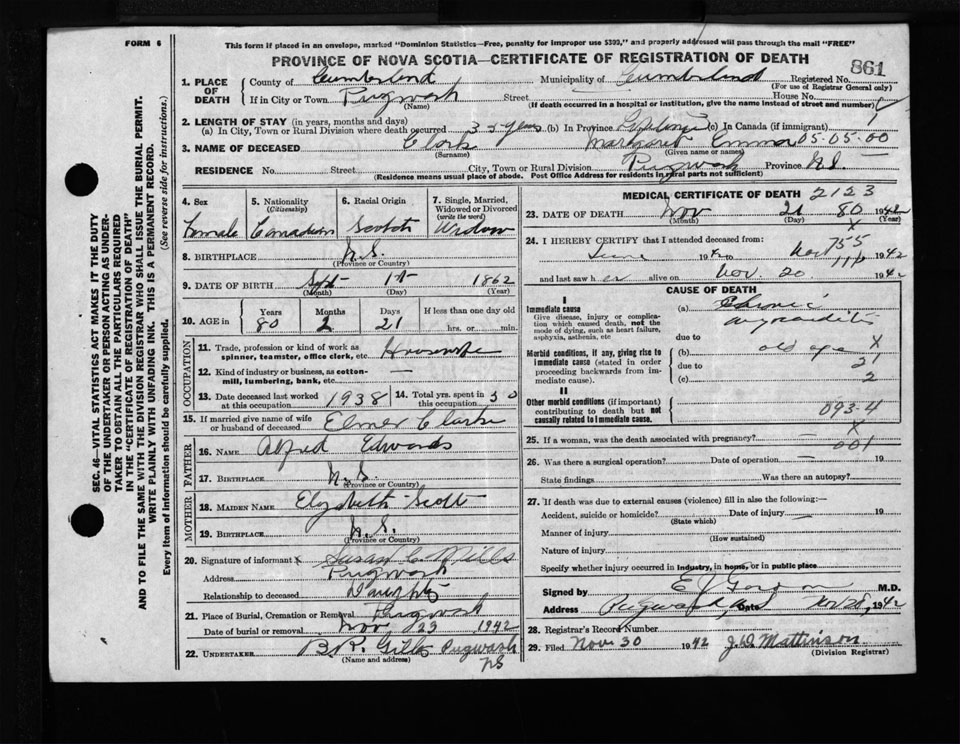 FORM 6
This form if placed in an envelope, marked "Dominion Statistics—Free, penalty for improper use $300," and properly addressed will pass through the mail "FREE"
PROVINCE OF NOVA SCOTIA—CERTIFICATE OF REGISTRATION OF DEATH
861
1. PLACE OF DEATH County of Cumberland Municipality of Cumberland Registered No.
(For use of Registrar General only)
If in City or Town Pugwash Street House No.
(Name) (If death occurred in a hospital or institution, give the name instead of street and number)
2. LENGTH OF STAY (in years, months and days)
(a) In City, Town or Rural Division where death occurred 35 years (b) In Province (c) In Canada (if immigrant)
3. NAME OF DECEASED Clark Margaret Emma 05-05-00
(Surname) (Given name or names)
RESIDENCE No. Street City, Town or Rural Division Pugwash Province N.S.
(Residence means usual place of abode. Post Office Address for residents in rural parts not sufficient)
4. Sex Female
5. Nationality (Citizenship) Canadian
6. Racial Origin Scotch
7. Single, Married, Widowed or Divorced (write the word) Widow
8. BIRTHPLACE N.S.
(Province or Country)
9. DATE OF BIRTH Sept 1st 1862
(Month) (Day) (Year)
10. AGE in Years 80 Months 2 Days 21 If less than one day old hrs. or min.
OCCUPATION
11. Trade, profession or kind of work as spinner, teamster, office clerk, etc. Housewife
12. Kind of industry or business, as cotton-mill, lumbering, bank, etc.
13. Date deceased last worked at this occupation 1938 14. Total yrs. spent in this occupation 50
15. If married give name of wife or husband of deceased Elmer Clarke
FATHER
16. NAME Alfred Edwards
17. BIRTHPLACE N.S.
(Province or Country)
MOTHER
18. MAIDEN NAME Elizabeth Scott
19. BIRTHPLACE N.S.
(Province or Country)
20. Signature of informant x Susan C. Mills
Address Pugwash
Relationship to deceased Daughter
21. Place of Burial, Cremation or Removal Pugwash
Date of burial or removal Nov 23 1942
22. UNDERTAKER B.R. Pugwash
(Name and address) NS
MEDICAL CERTIFICATE OF DEATH 2123
23. DATE OF DEATH Nov 21 80 1942
(Month) (Day) (Year)
24. I HEREBY CERTIFY that I attended deceased from:
June 1942 to Nov 1942
and last saw her alive on Nov. 20 1942
CAUSE OF DEATH
I
Immediate cause
Give disease, injury or complication which caused death, not the mode of dying, such as heart failure, asphyxia, asthenia, etc
(a) Chronic
due to
Morbid conditions, if any, giving rise to immediate cause (stated in order proceeding backwards from immediate cause).
(b) old age X
due to 21
(c) 2
II
Other morbid conditions (if important) contributing to death but not causally related to immediate cause.
093-4
X
25. If a woman, was the death associated with pregnancy? 001
26. Was there a surgical operation? Date of operation 19
State findings Was there an autopsy?
27. If death was due to external causes (violence) fill in also the following:—
Accident, suicide or homicide? Date of injury 19
(State which)
Manner of injury
(How sustained)
Nature of injury
Specify whether injury occurred in industry, in home, or in public place
Signed by E J Gordon M.D.
Address Pugwash Date 1942
28. Registrar's Record Number
29. Filed Nov 30 1942 J.D. Mattinson
(Division Registrar)
SEC. 46—VITAL STATISTICS ACT MAKES IT THE DUTY
OF THE UNDERTAKER OR PERSON ACTING AS UNDERTAKER TO OBTAIN ALL THE PARTICULARS REQUIRED
IN THE "CERTIFICATE OF REGISTRATION OF DEATH"
AND TO FILE THE SAME WITH THE DIVISION REGISTRAR WHO SHALL ISSUE THE BURIAL PERMIT.
WRITE PLAINLY WITH UNFADING INK. THIS IS A PERMANENT RECORD.
Every item of information should be carefully supplied. (See reverse side for instructions.)